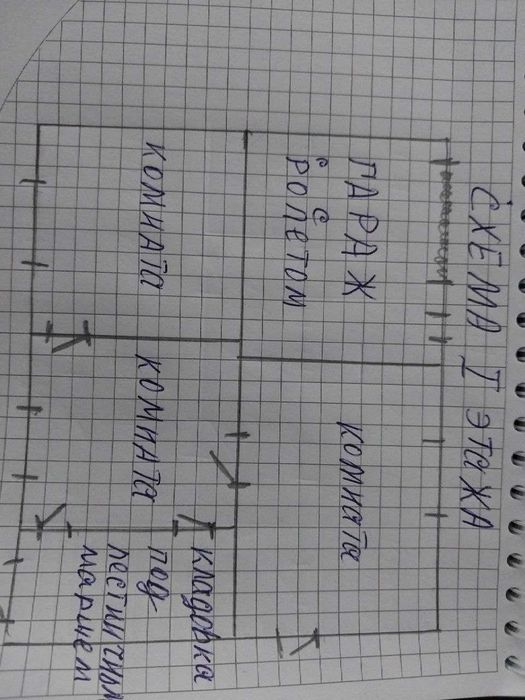 СХЕМА I ЭТАЖА
ГАРАЖ
С
РОЛЕТОМ
КОМНАТА
КОМНАТА
КОМНАТА
КЛАДОВКА
ПОД
ЛЕСТНИЧНЫМ
МАРШЕМ